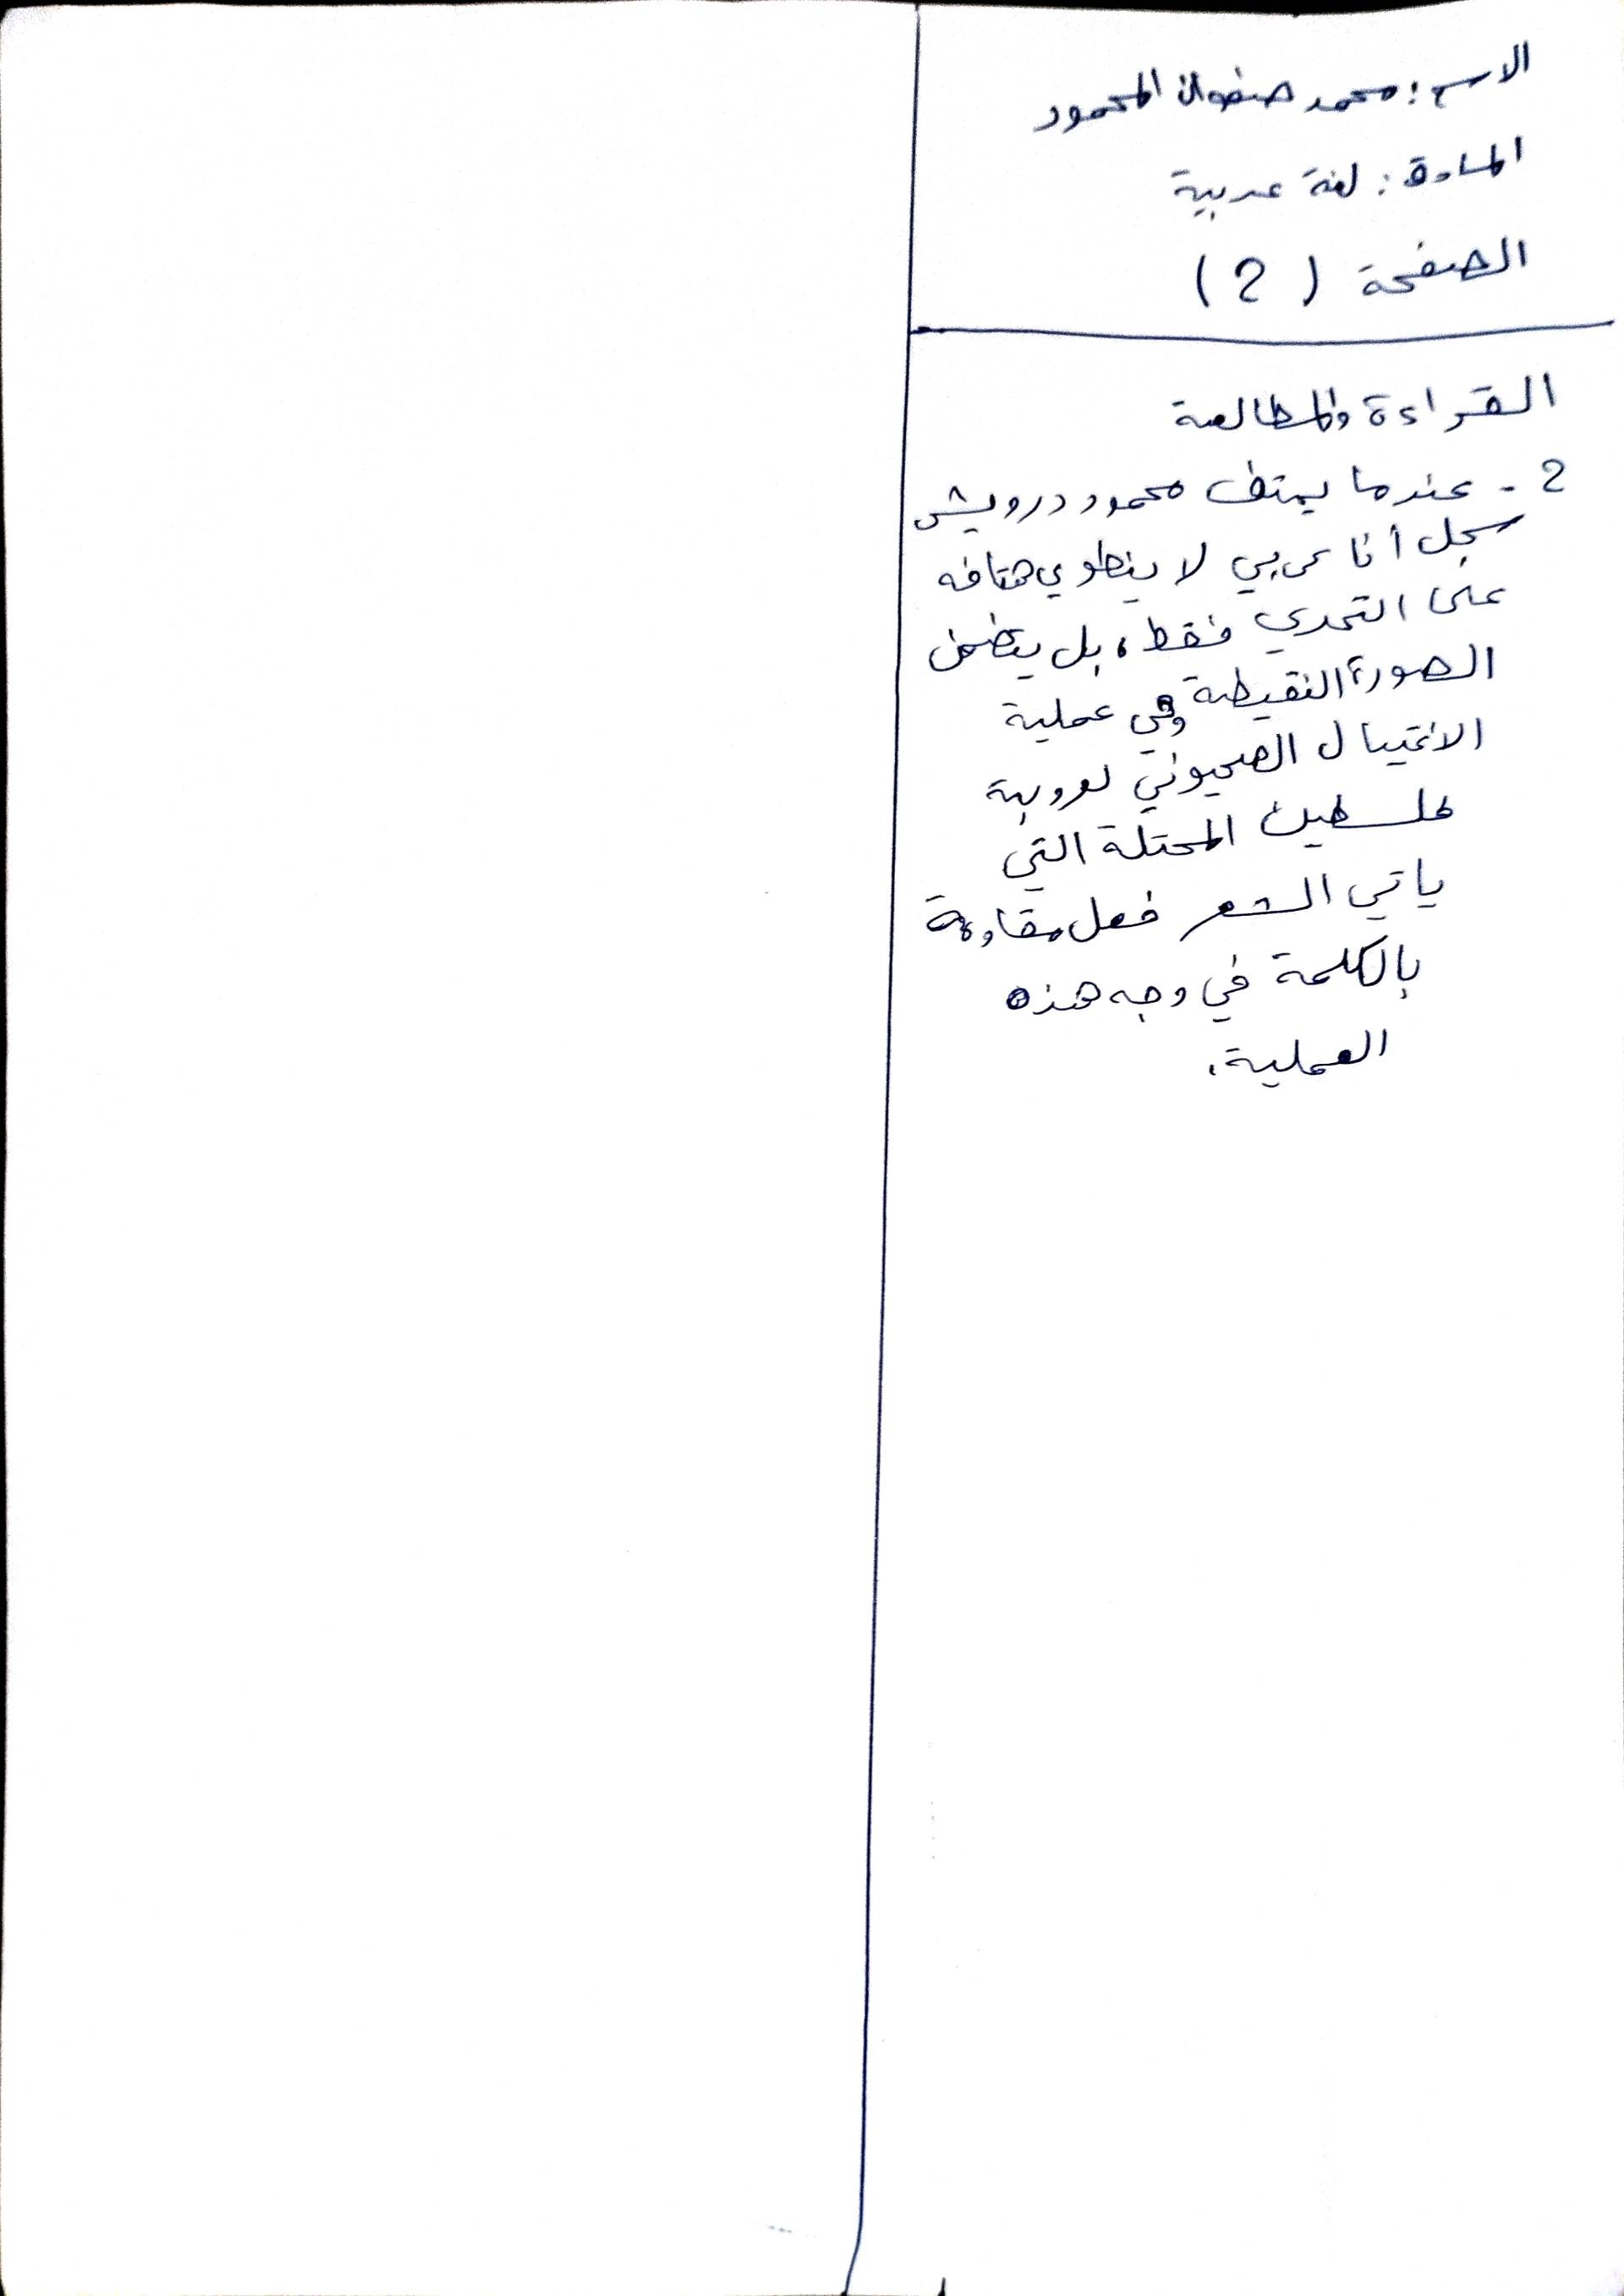 الاسم: محمد صفوان المحمود
المادة: لغة عربية
الصفحة (2)
القراءة والمطالعة
2 - عندما يهتف محمود درويش
سجل أنا عربي لا ينطوي هتافه
على التحدي فقط، بل يتضمن
الصورة النقيضة وهي عملية
الاغتيال الصهيوني لعروبة
فلسطين المحتلة التي
ياتي الشعر فعل مقاومة
بالكلمة في وجه هذه
العملية.